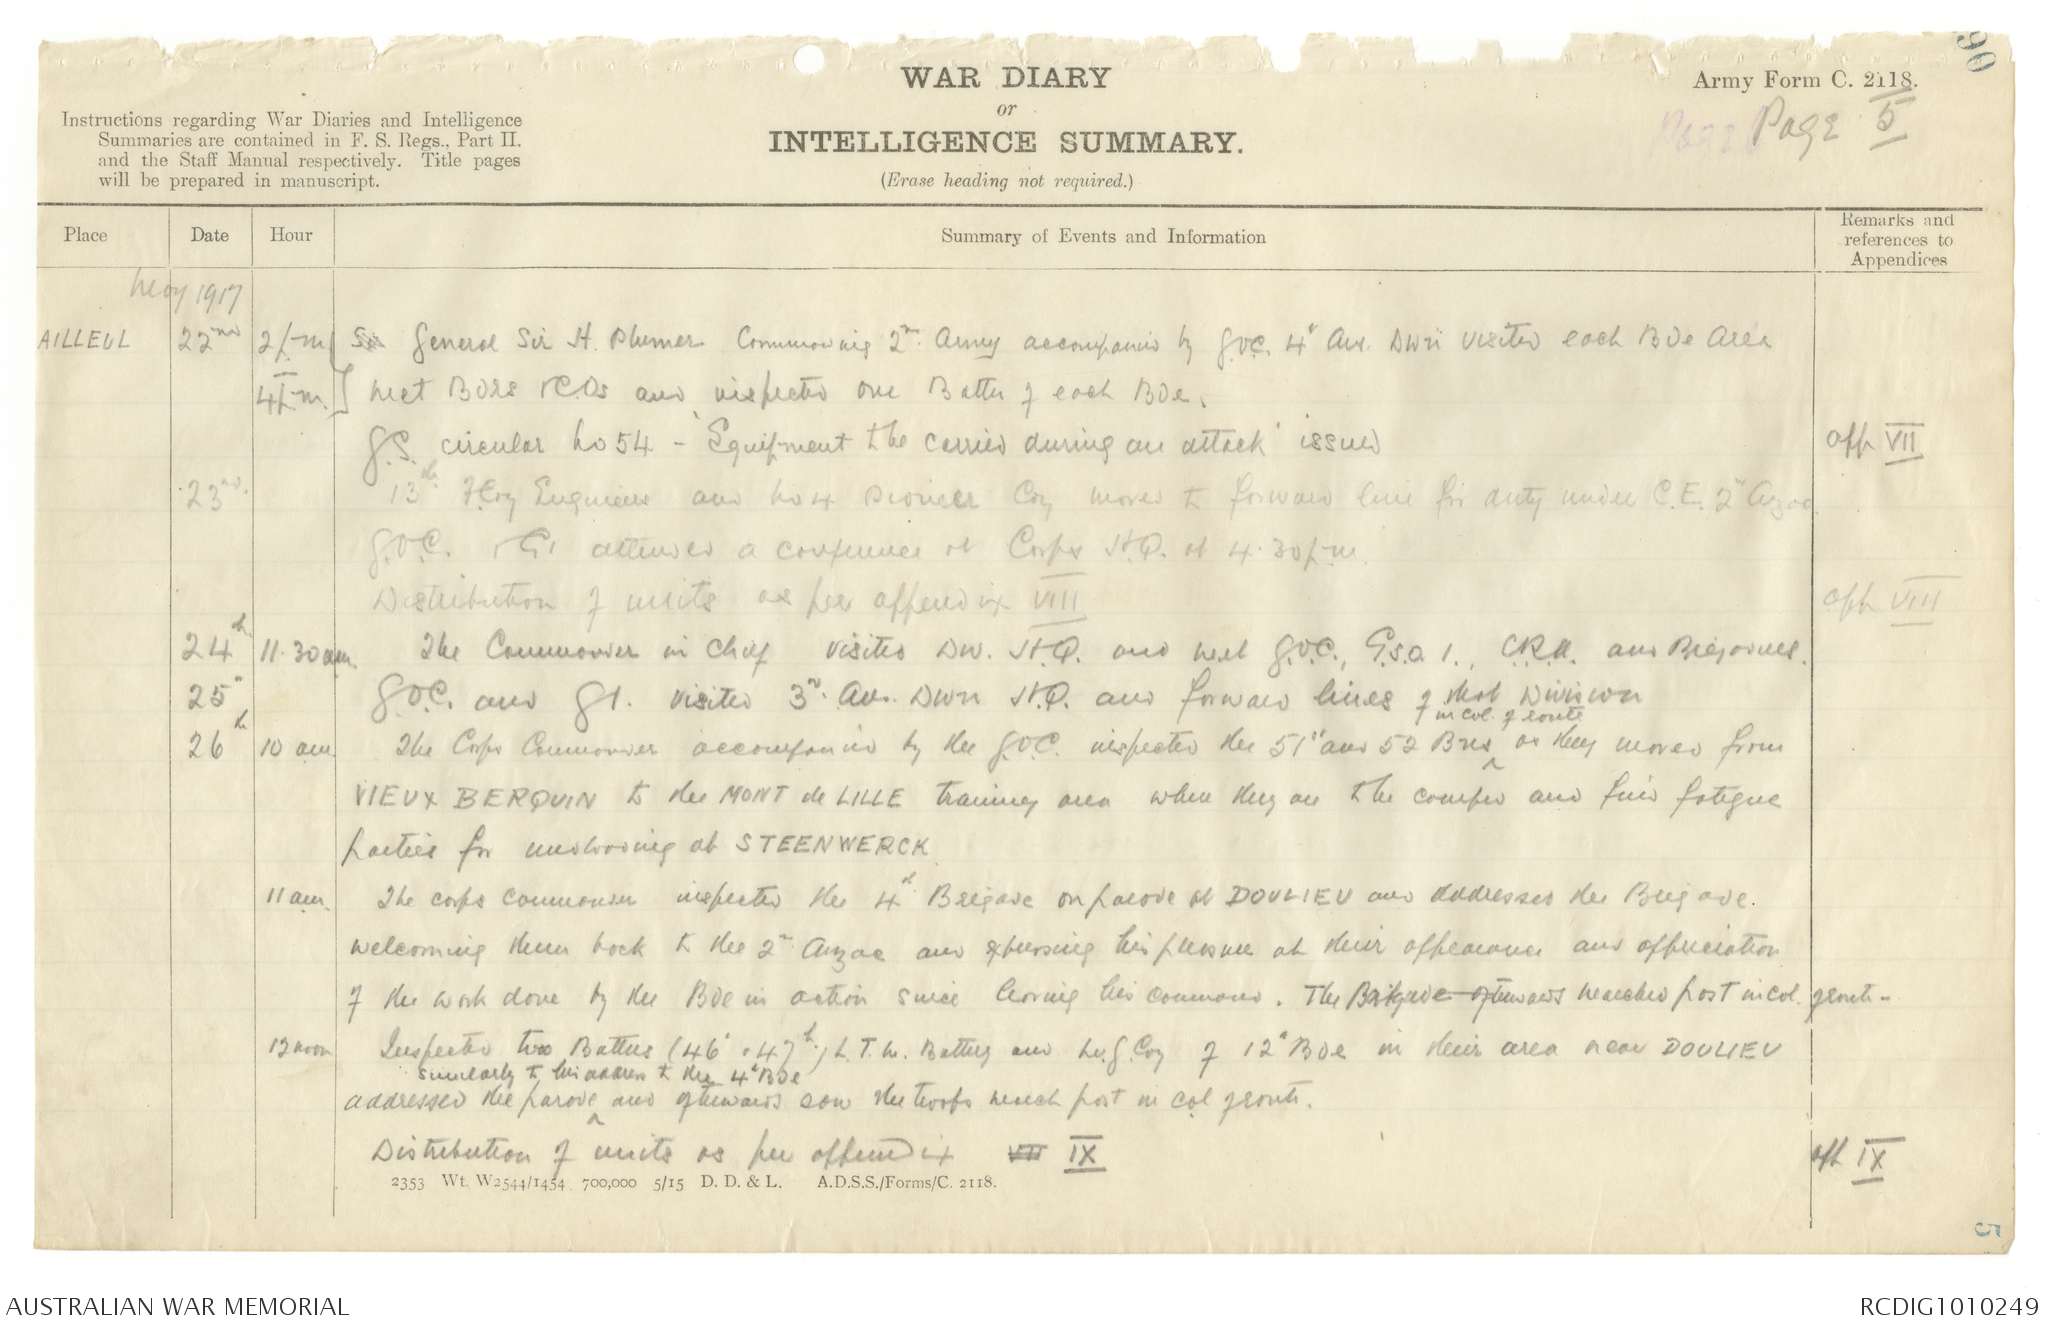 90
WAR DIARY
or
INTELLIGENCE SUMMARY.
(Erase heading not required.)
Army Form C. 2118.
Page Page 5
Instructions regarding War Diaries and Intelligence
Summaries are contained in F. S. Regs., Part II.
and the Staff Manual respectively. Title pages
will be prepared in manuscript.
Place Date Hour Summary of Events and Information Remarks and references to Appendices
May 1917
AILLEUL 22nd 2 p.m General Sir H. Plumer Commanding 2nd Army accompanied by G.O.C. 4th Aus. Divn visited each Bde Area
4 p.m. met Bdrs & C.Os and inspected one Battn of each Bde.
G.S. circular No 54 - 'Equipment to be carried during an attack' issued app VII
23rd. 13th F Coy Engineers and No 4 Pioneer Coy moved to forward line for duty under C.E. 2nd Anzac
G.O.C. & G1 attended a conference at Corps H.Q. at 4.30 p.m.
Distribution of units as per appendix VIII app VIII
24th 11.30 am. The Commander in Chief visited Div. H.Q. and met G.O.C., G.S.O 1., C.R.A. and Brigadiers.
25th G.O.C. and G1. visited 3rd Aus. Divn H.Q. and forward lines of that Division
in col. of route
26th 10 am. The Corps Commander accompanied by the G.O.C. inspected the 51st and 52 Bns ^ as they moved from
VIEUX BERQUIN to the MONT de LILLE training area where they are to be camped and find fatigue
parties for unloading at STEENWERCK
11 am. The corps commander inspected the 4th Brigade on parade at DOULIEU and addressed the Brigade.
welcoming them back to the 2nd Anzac and expressing his pleasure at their appearance and appreciation
of the work done by the Bde in action since leaving his command. The Brigade afterwards marched past in col. of route -
12 noon Inspected two Battns (46th & 47th) L.T.M. Battery and M.G. Coy of 12th Bde in their area near DOULIEU
similarly to his address to the 4th Bde
addressed the parade ^ and afterwards saw the troops march past in col of route.
Distribution of units as per appendix VII IX app IX
2353 Wt. W2544/1454 700,000 5/15 D. D. & L. A.D.S.S./Forms/C. 2118.
5
AUSTRALIAN WAR MEMORIAL RCDIG1010249